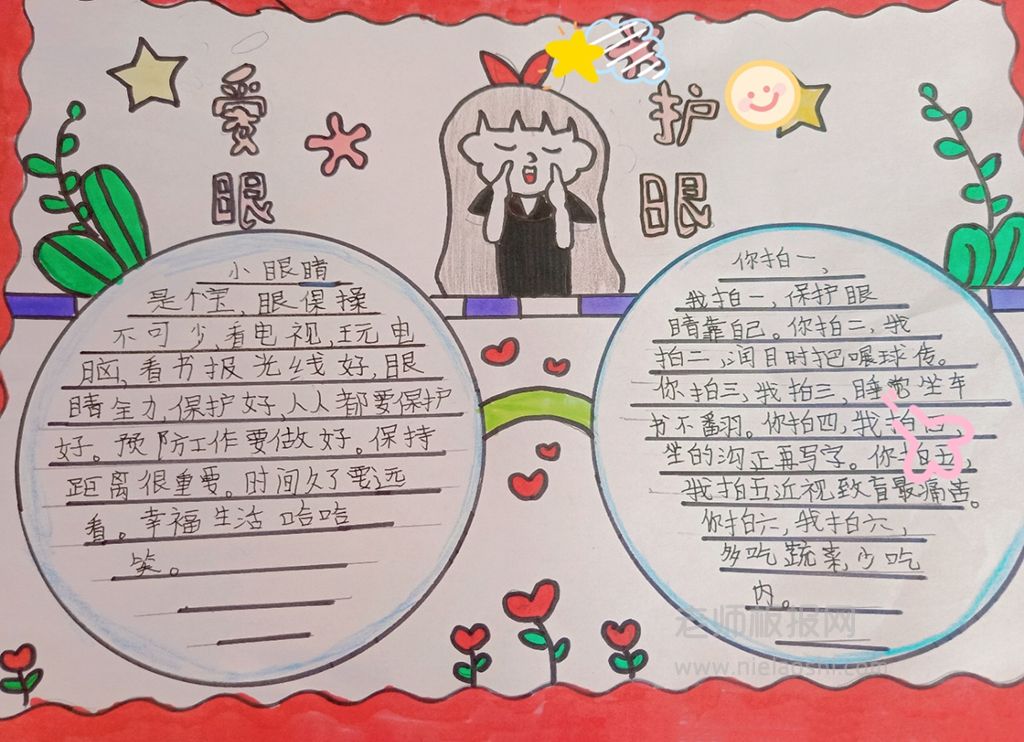 爱
护
眼
眼
小眼睛
是个宝,眼保操
不可少,看电视,玩电
脑,看书报光线好,眼
睛全力,保护好,人人都要保护
好。预防工作要做好。保持
距离很重要。时间久了要远
看。幸福生活哈哈
笑。
你拍一,
我拍一,保护眼
睛靠自己。你拍二,我
拍二,润目时把喔球传。
你拍三,我拍三,睡觉坐车
书不翻。你拍四,我拍四,
坐的沟正再写字。你拍五,
我拍五近视致盲最痛苦。
你拍六,我拍六,
多吃蔬菜,少吃
内。
老师板报网
www.nielaoshi.com